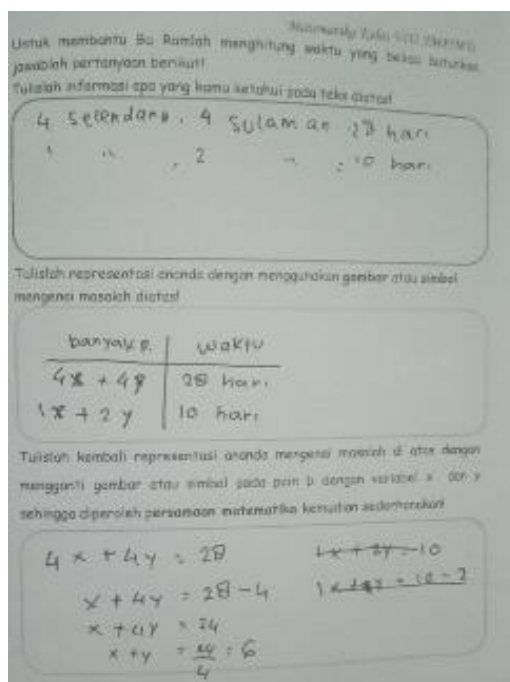 Matematika Kelas VIII SMP/MTs
Untuk membantu Bu Ramlah menghitung waktu yang beliau butuhkan,
jawablah pertanyaan berikut!
Tulislah informasi apa yang kamu ketahui pada teks diatas!
4 Selendang, 4 Sulaman 28 hari
1 " , 2 " = 10 hari
Tulislah representasi ananda dengan menggunakan gambar atau simbol
mengenai masalah diatas!
banyak p. waktu
4x + 4y 28 hari
1x + 2y 10 hari
Tulislah kembali representasi ananda mengenai masalah di atas dengan
mengganti gambar atau simbol pada poin b dengan variabel x dan y
sehingga diperoleh persamaan matematika kemudian sederhanakan!
4x + 4y = 28 1x + 2y = 10
x + 4y = 28 - 4 1x + 2y = 10 - 2
x + 4y = 24
x + y = 24/4 = 6